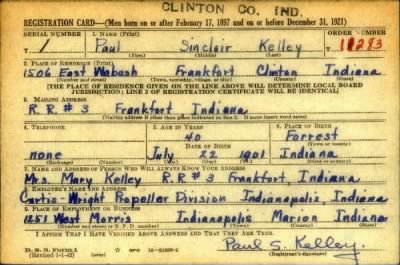 CLINTON CO. IND.
REGISTRATION CARD—(Men born on or after February 17, 1897 and on or before December 31, 1921)
SERIAL NUMBER 1. NAME (Print) ORDER NUMBER
1 Paul Sinclair Kelley 11283
(First) (Middle) (Last)
2. PLACE OF RESIDENCE (Print)
1506 East Wabash Frankfort Clinton Indiana
(Number and street) (Town, township, village, or city) (County) (State)
[THE PLACE OF RESIDENCE GIVEN ON THE LINE ABOVE WILL DETERMINE LOCAL BOARD
JURISDICTION; LINE 2 OF REGISTRATION CERTIFICATE WILL BE IDENTICAL]
3. MAILING ADDRESS
R.R. #3 Frankfort Indiana
[Mailing address if other than place indicated on line 2. If same insert word same]
4. TELEPHONE 5. AGE IN YEARS 6. PLACE OF BIRTH
40 Forrest
DATE OF BIRTH (Town or county)
none July 22 1901 Indiana
(Exchange) (Number) (Mo.) (Day) (Yr.) (State or country)
7. NAME AND ADDRESS OF PERSON WHO WILL ALWAYS KNOW YOUR ADDRESS
Mrs. Mary Kelley R.R #3 Frankfort, Indiana
8. EMPLOYER'S NAME AND ADDRESS
Curtis-Wright Propeller Division Indianapolis, Indiana
9. PLACE OF EMPLOYMENT OR BUSINESS
1251 West Morris Indianapolis Marion Indiana
(Number and street or R. F. D. number) (Town) (County) (State)
I AFFIRM THAT I HAVE VERIFIED ABOVE ANSWERS AND THAT THEY ARE TRUE.
D. S. S. FORM 1
(Revised 1-1-42) Paul S. Kelley.
(Registrant's signature)